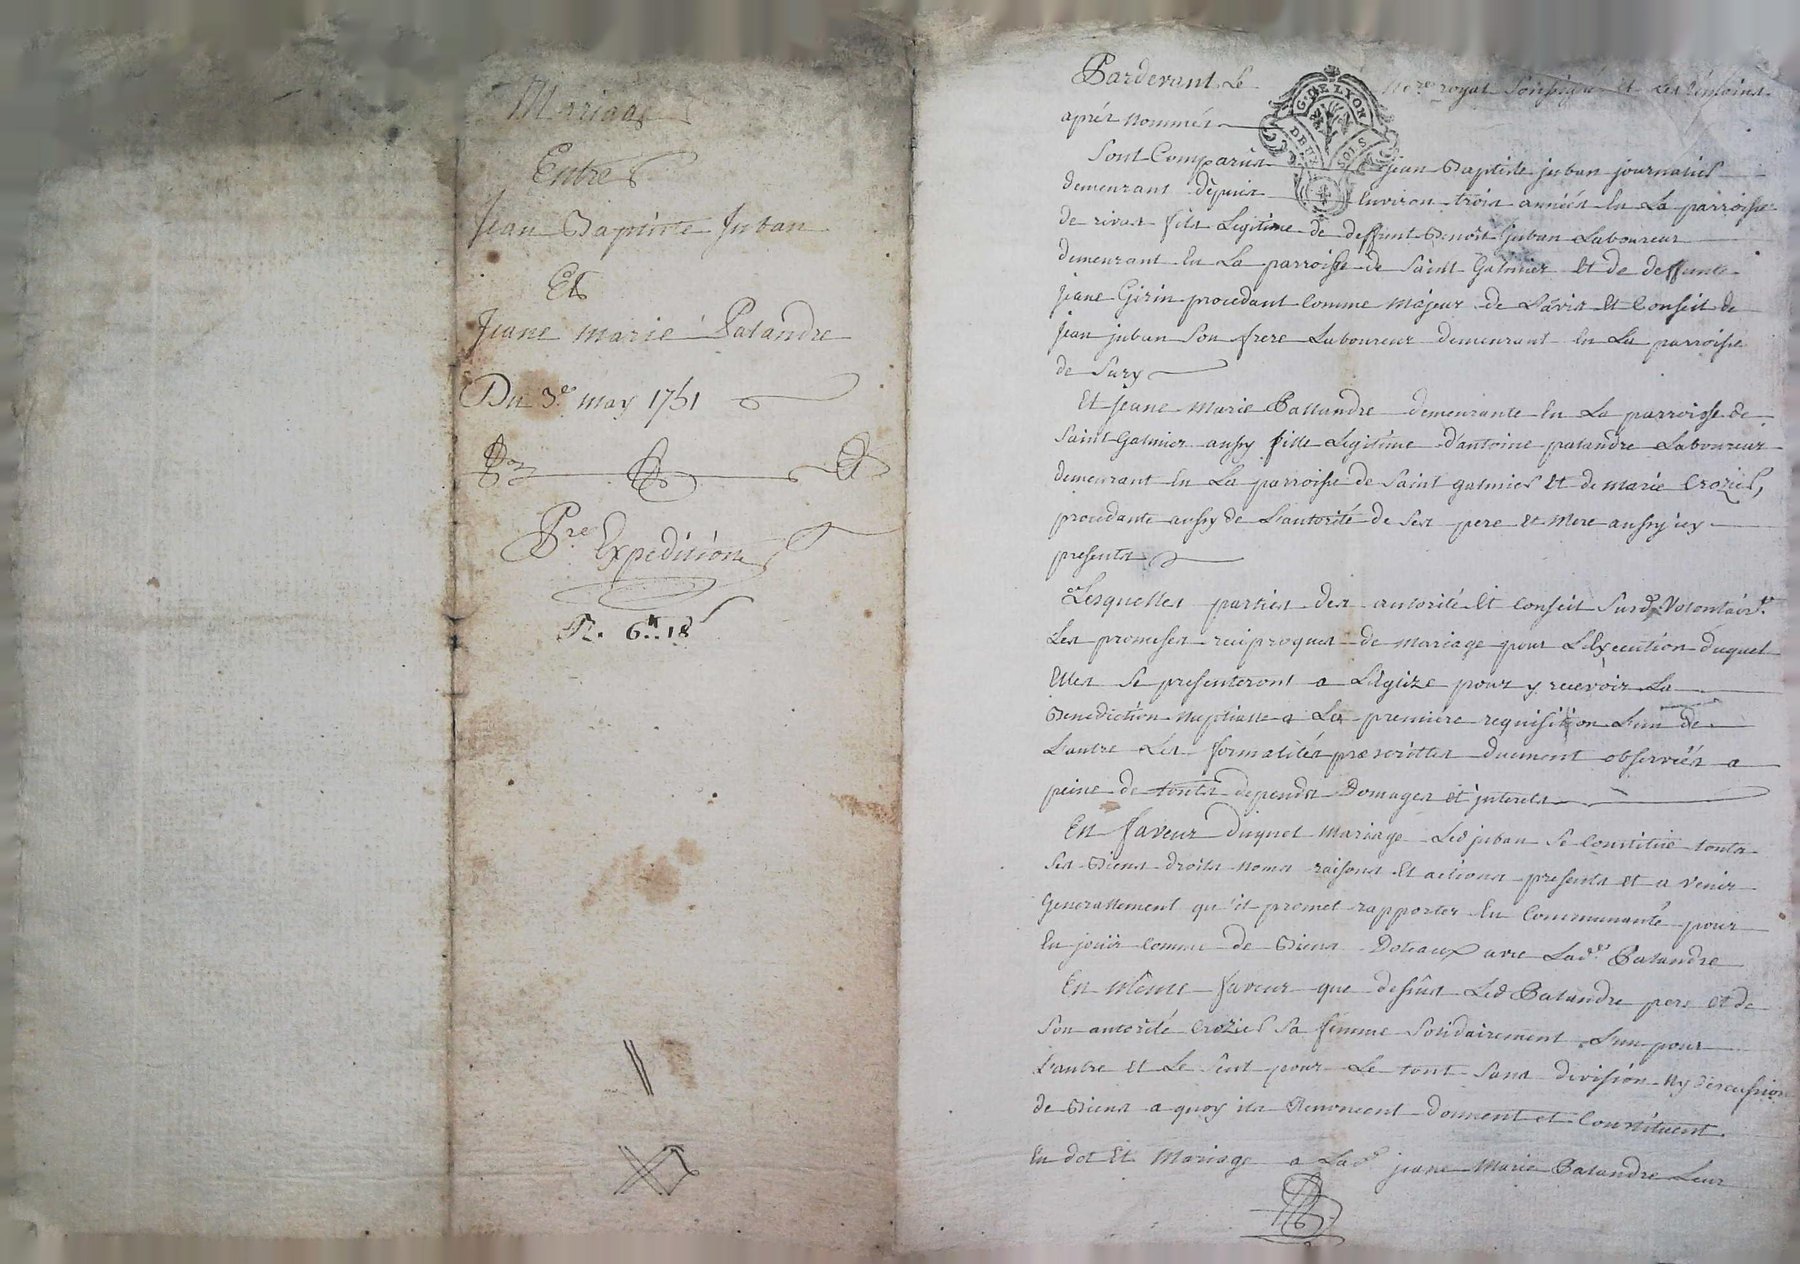 Mariage
Entre
Jean Baptiste Juban
Et
Jeane marie Palandre
Du 3e may 1751
Pre Expeditione
R. 6.. 18s
Pardevant Le no.re royal Soussigné et Les témoins
aprés nommés
G. DE LYON
DEUX SOLS
Sont Comparus jean Baptiste juban journalier
demeurant depuis Environ trois années En La parroisse
de rivas fils Legitime de deffunt Benoit juban Laboureur
demeurant En La parroisse de Saint Galmier Et de deffunte
jeane Girin procedant Comme majeur de L'avis Et Conseil de
jean juban Son frere Laboureur demeurant En La parroisse
de Sury
Et jeane Marie Pallandre demeurante En La parroisse de
Saint Galmier aussy fille Legitime d'antoine palandre Laboureur
demeurant En La parroisse de Saint galmier Et de marie Crozier,
procedante aussy de L'autorité de Ses pere Et Mere aussy icy
presents
Lesquelles parties des autorité Et Conseil Susd. Volontair.t
Les promesses reciproques de mariage pour L'Execution duquel
Elles Se presenteront a L'églize pour y recevoir La
Benediction Nuptialle a La premiere requisition L'un de
L'autre Les formalités prescrittes duement observées a
peine de touts depends Domages et interets
En faveur duquel mariage Led juban Se Constitue touts
Ses Biens droits noms raisons Et actions presents et a venir
Generallement qu'il promet rapporter En Communauté pour
En jouir comme de Biens Doteaux avec Lad.e Palandre
En même faveur que dessus Led Palandre pere et de
Son autorité Crozier Sa femme Solidairement L'un pour
L'autre Et Le Seul pour Le tout Sans division Ny discussion
de Biens a quoy ils Renoncent donnent et Constituent
En dot Et Mariage a Lad.e jeane Marie Palandre Leur